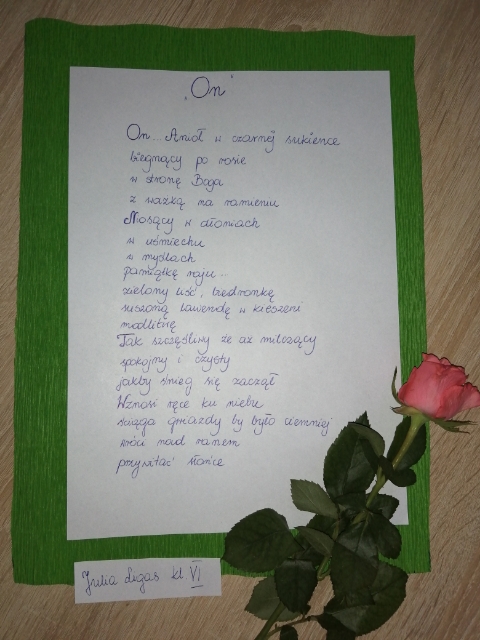 „On"
On... Anioł w czarnej sukience
biegnący po rosie
w stronę Boga
z ważką na ramieniu
Niosący w dłoniach
w uśmiechu
w myślach
pamiątkę raju...
zielony liść, biedronkę
suszoną lawendę w kieszeni
modlitwę
Tak szczęśliwy że aż milczący
spokojny i czysty
jakby śnieg się zaczął
Wznosi ręce ku niebu
ściąga gwiazdy by było ciemniej
wróci nad ranem
przywitać słońce
Julia Ligas kl VI